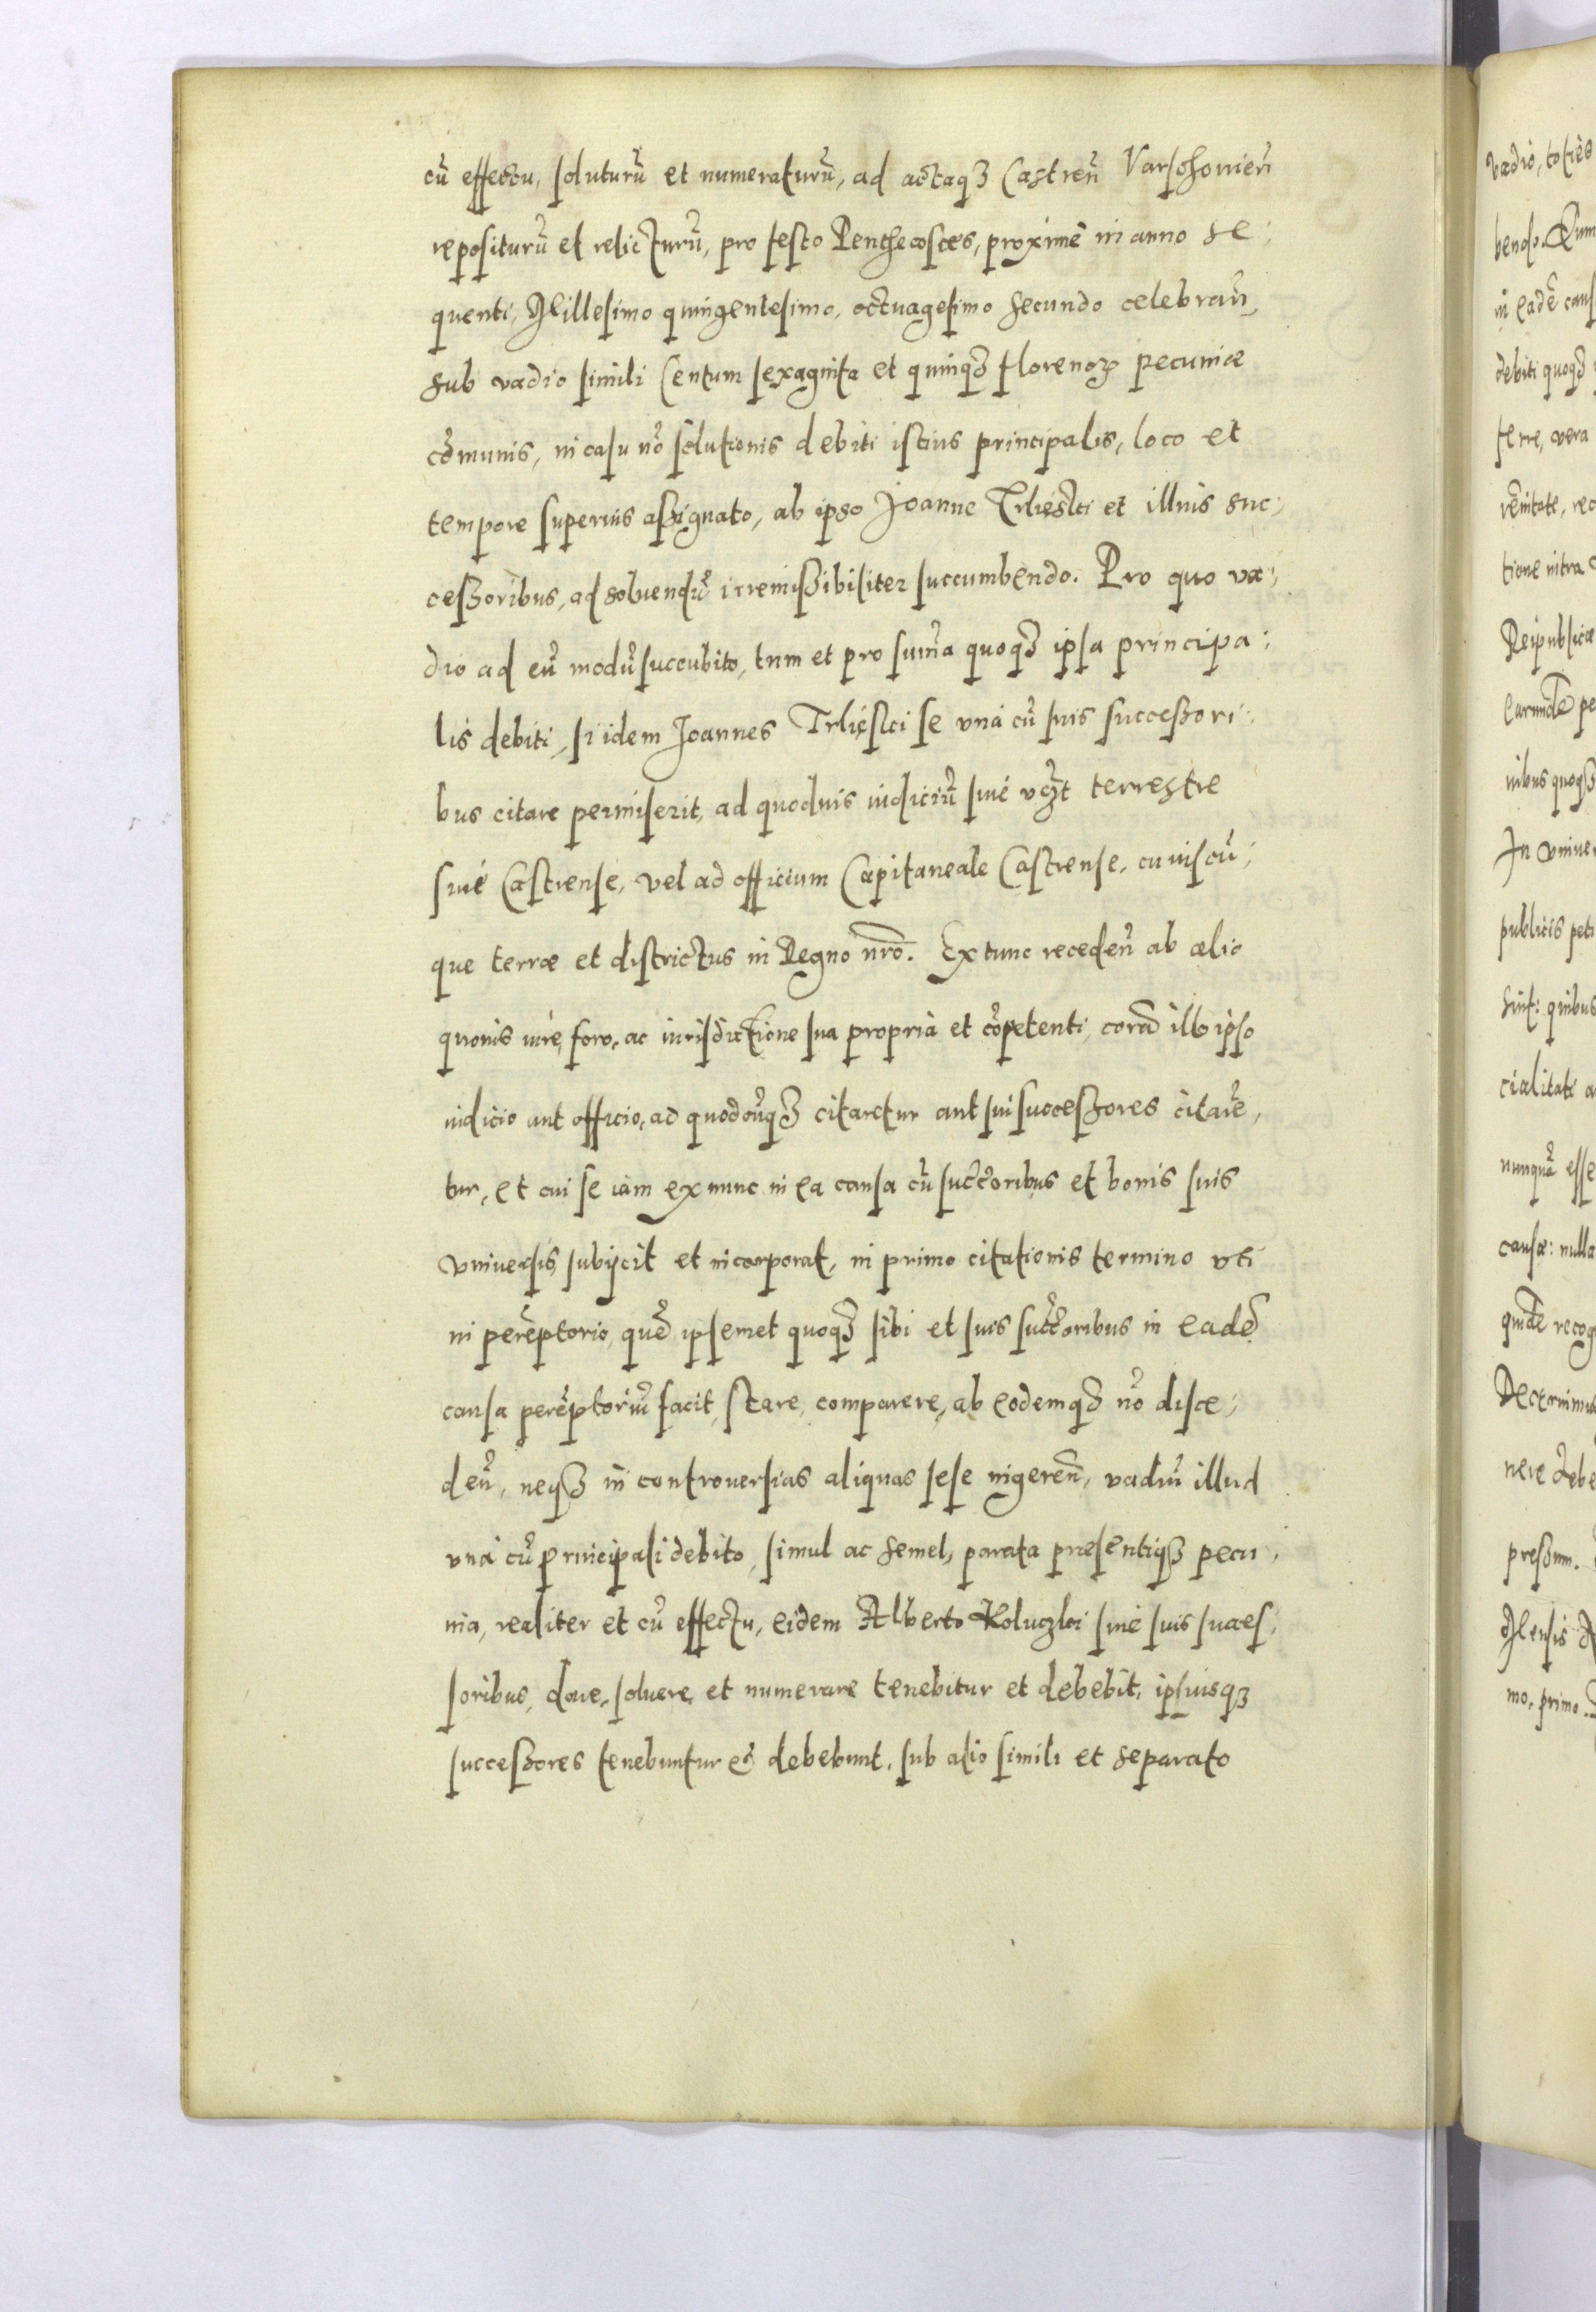 cũ effectu, soluturũ et numeraturũ, ad actaqꝫ Castreñ Varschouieñ
repositurũ et relicturũ, pro festo Penthecostes, proximè in anno se:
quenti, Millesimo quingentesimo, octuagesimo secundo celebrañ,
sub vadio simili Centum sexaginta et quinqꝫ florenoꝝ pecuniæ
cõmunis, in casu nõ solutionis debiti istius principalis, loco et
tempore superius assignato, ab ipso Joanne Trliesski et illius suc:
cessoribus, ad soluendũ irremissibiliter succumbendo. Pro quo va:
dio ad eũ modũ succubito, tum et pro sum̃a quoqꝫ ipsa principa:
lis debiti, si idem Joannes Trlięsici se vnà cũ suis successori:
bus citare permiserit, ad quoduis iudiciũ siuè vꝫt terrestre
siuè Castrense, vel ad officium Capitaneale Castrense, cuiuscũ:
que terræ et districtus in Regno nr̃o. Ex tunc recedeñ ab alio
quouis iure, foro, ac iurisdictione sua propria et cõpetenti, corã illo ipso
iudicio aut officio, ad quodcũqꝫ citaretur aut sui successores citarẽ,
tur, et cui se iàm ex nunc in ea causa cũ succ̃oribus et bonis suis
vniuersis, subijcit et incorporat, in primo citationis termino vti
in perẽptorio, quẽ ipsemet quoqꝫ sibi et suis succ̃oribus in eadẽ
causa perẽptoriũ facit, stare, comparere, ab eodemqꝫ nõ disce:
deñ, neqꝫ in controuersias aliquas sese ingereñ, vadiũ illud
vnà cũ principali debito, simul ac semel, parata præsentiqꝫ pecu:
nia, realiter et cũ effectu, eidem Alberto Koluczki siuè suis succes:
soribus, dare, soluere, et numerare tenebitur et debebit, ipsiusqꝫ
successores tenebuntur et debebunt, sub alio simili et separato
vadio, totiès
bendo. Cum
in eadẽ caus
debiti quoqꝫ
ferre, vera
tione intra
Reipublicæ
nibus quoqꝫ
In
publicis peti
sint: quibus
cialitati a
nunquã esse
causæ: nulla
recog
nere debe
mo, primo.